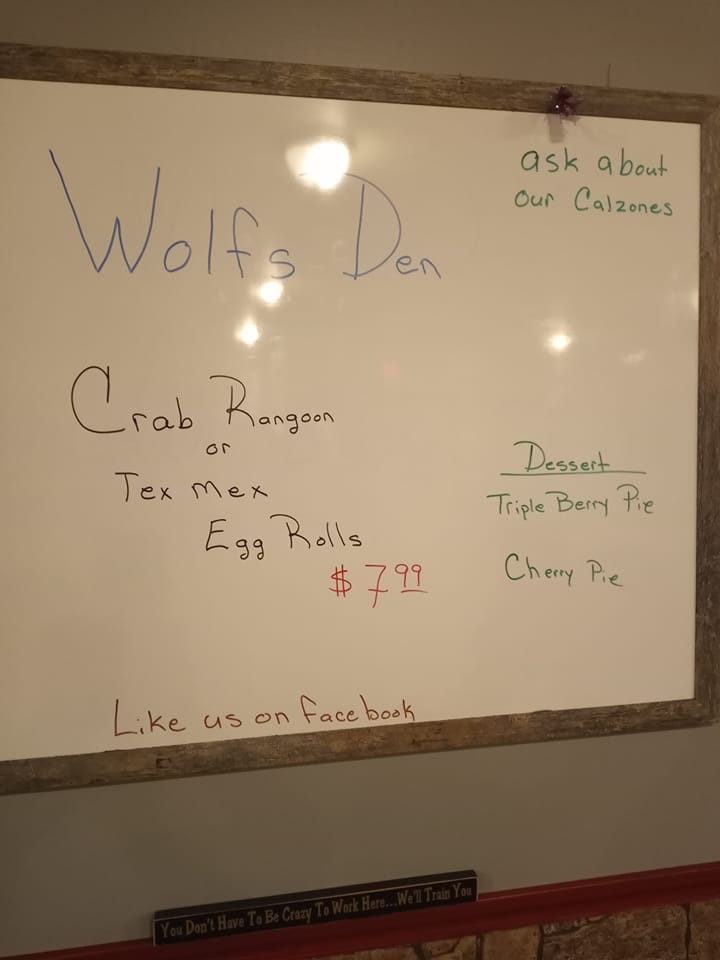 Wolfs Den
ask about
our Calzones
Crab Rangoon
or
Tex Mex
Egg Rolls
$7.99
Dessert
Triple Berry Pie
Cherry Pie
Like us on facebook
You Don't Have To Be Crazy To Work Here...We'll Train You